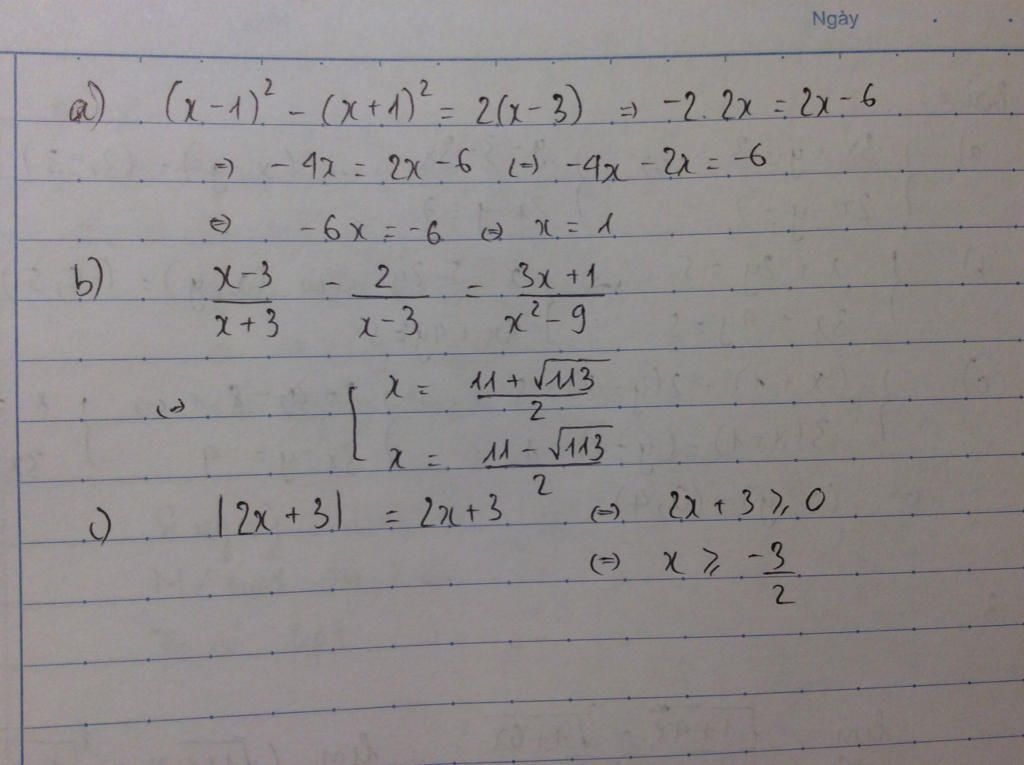 Ngày
a) (x-1)² - (x+1)² = 2(x-3) => -2.2x = 2x-6
=> -4x = 2x-6 <=> -4x - 2x = -6
<=> -6x = -6 <=> x = 1
b) \frac{x-3}{x+3} - \frac{2}{x-3} = \frac{3x+1}{x²-9}
<=> [ x = \frac{11+\sqrt{113}}{2}
x = \frac{11-\sqrt{113}}{2}
c) |2x+3| = 2x+3 <=> 2x+3 ⩾ 0
<=> x ⩾ \frac{-3}{2}